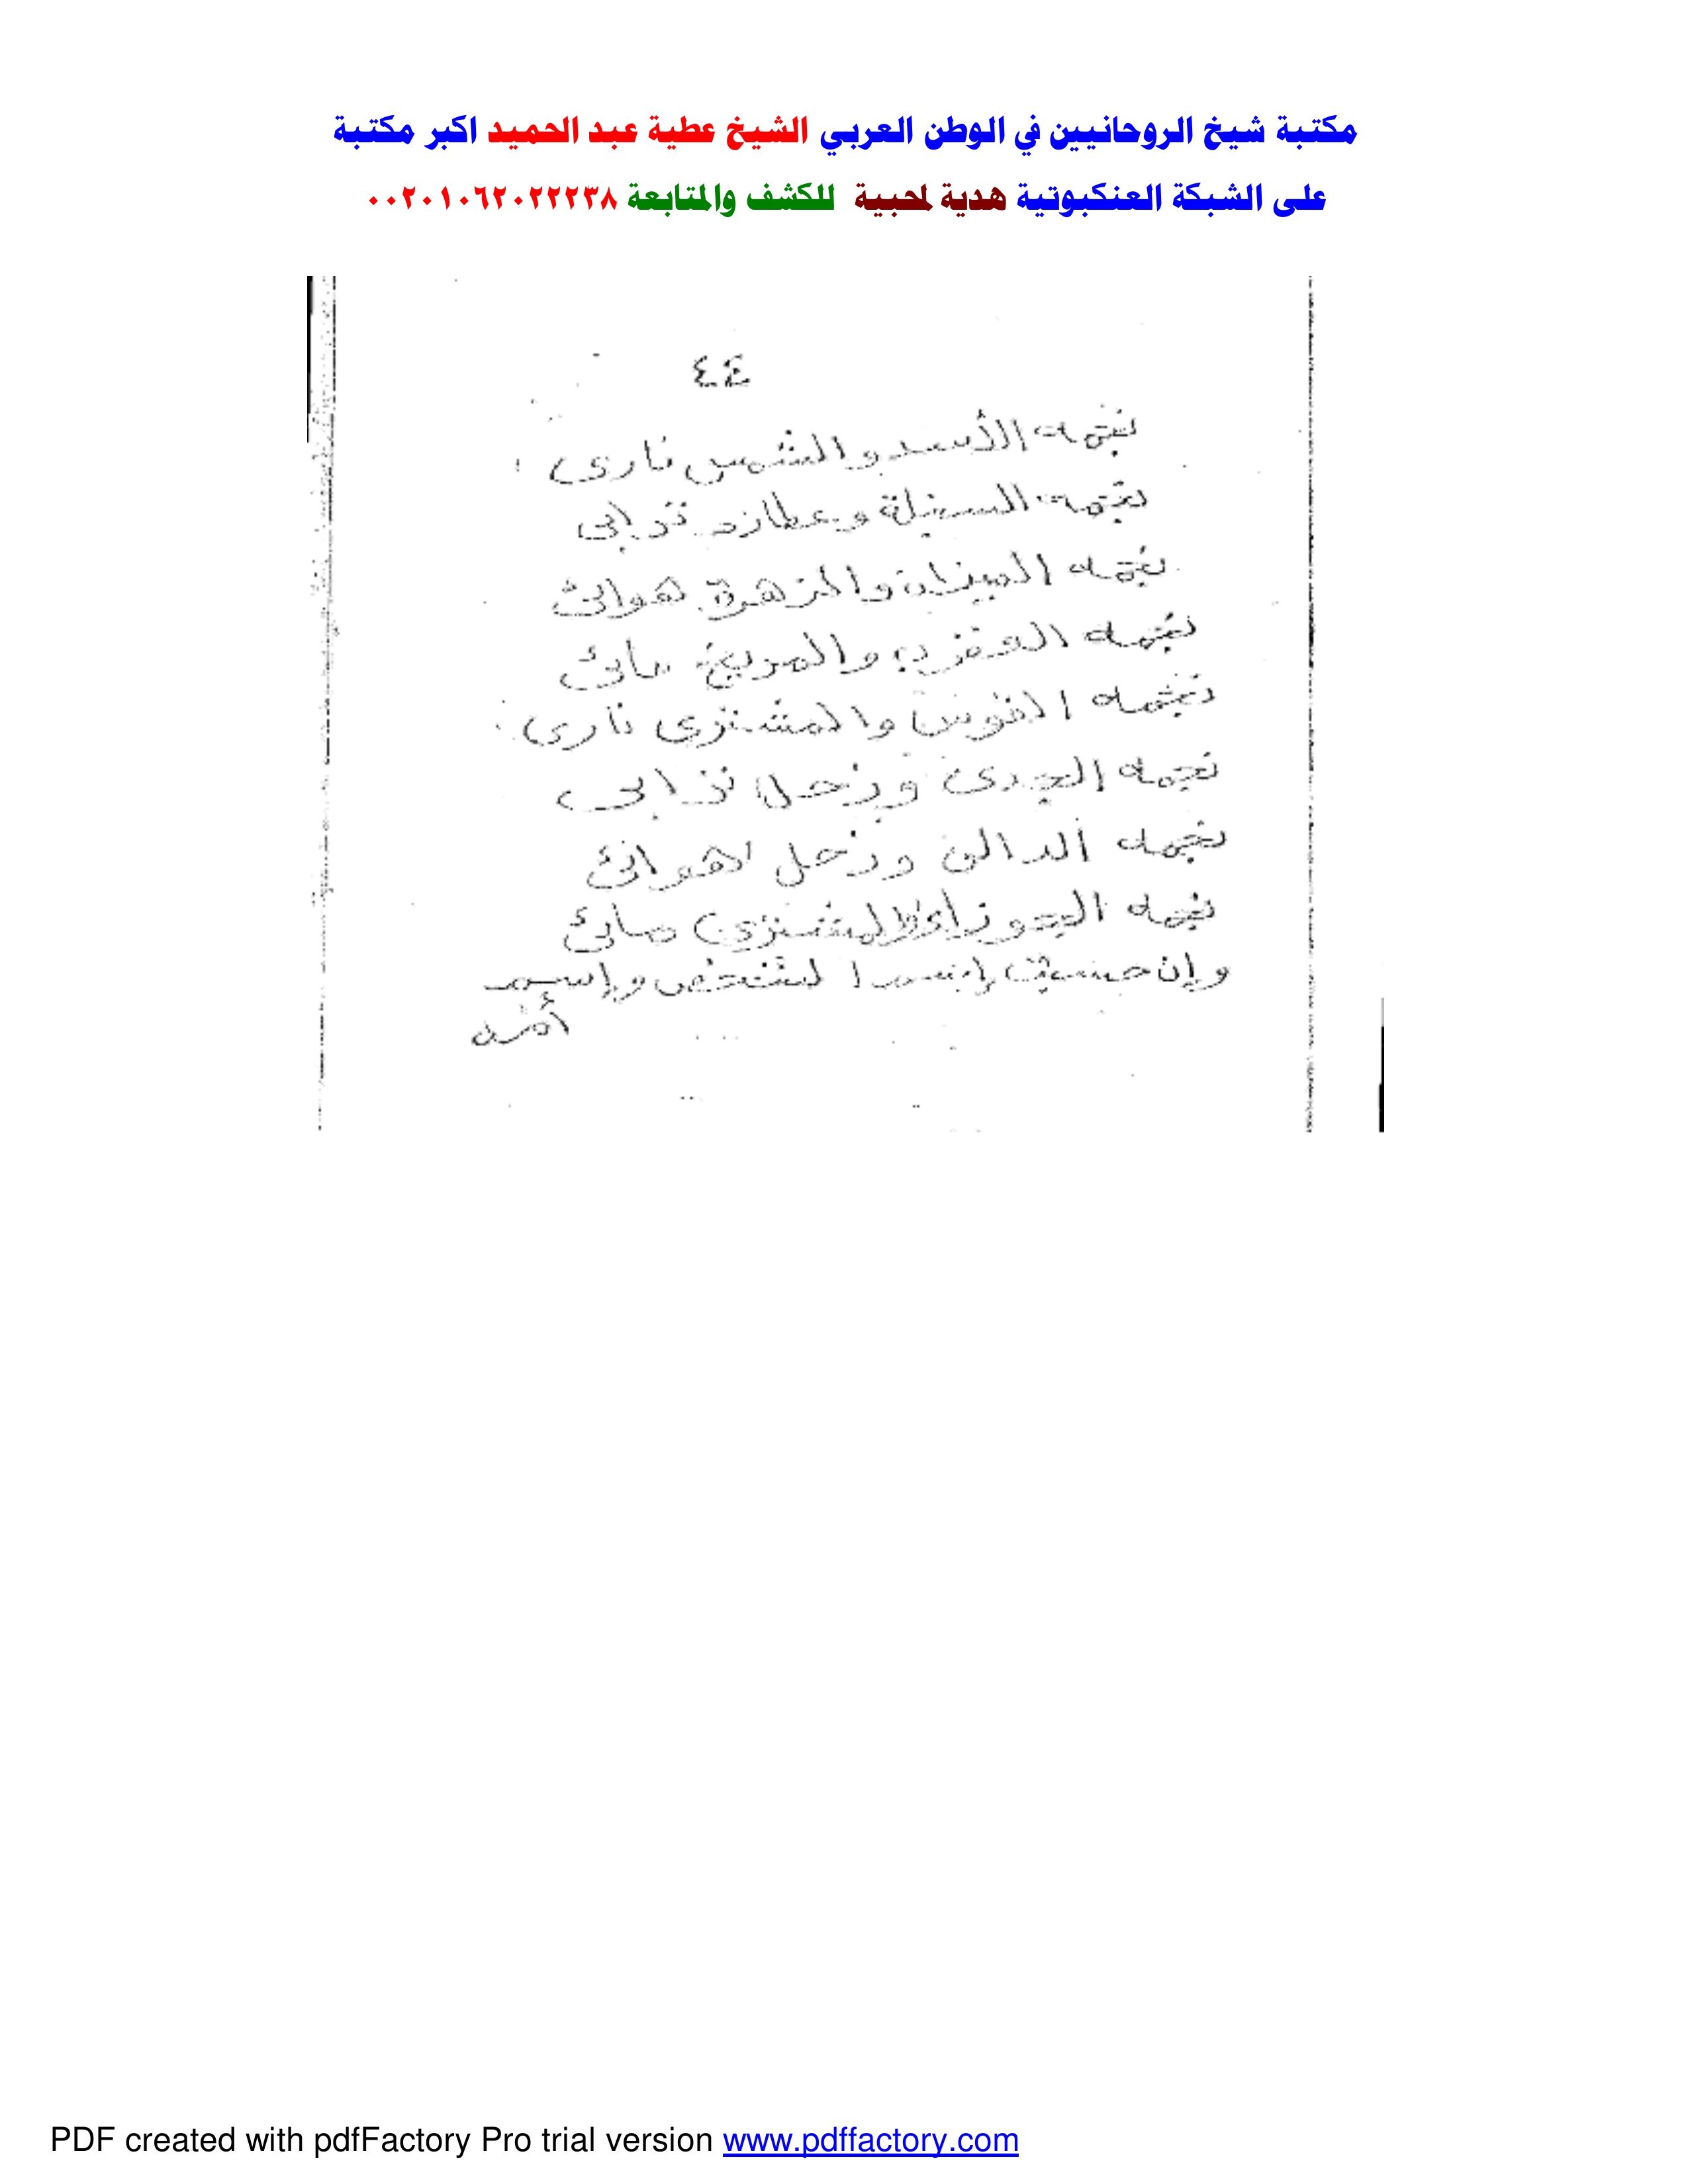 مكتبة شيخ الروحانيين في الوطن العربي الشيخ عطية عبد الحميد اكبر مكتبة
على الشبكة العنكبوتية هدية لمحبية للكشف والمتابعة ٠٠٢٠١٠٦٢٠٢٢٢٣٨
٤٤
نجمه الأسد والشمس نارى
نجمه السنبلة وعطارد ترابى
نجمه الميزان والزهرة هوائ
نجمه العقرب والمريخ مائ
نجمه القوس والمشترى نارى
نجمه الجدى وزحل ترابى
نجمه الدالى وزحل هوائ
نجمه والمشترى مائ
وإن حسبت إسما لشخص وإسم
أمه
PDF created with pdfFactory Pro trial version www.pdffactory.com